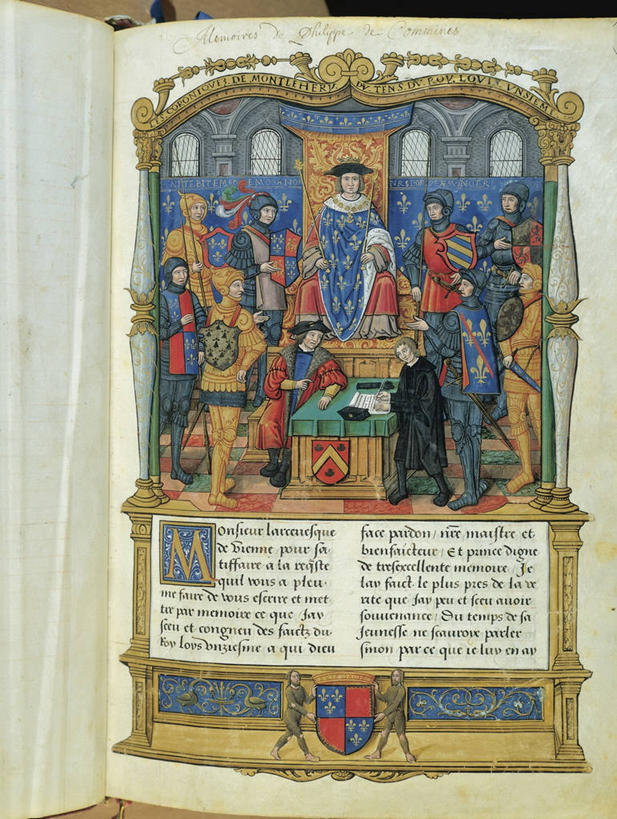 Memoires de Philippe de Commines
LES CORONIQVES DE MONTLEHERY DV TENS DV ROY LOVIX VNSIEM
Monsieur larcevesque
de Vienne pour sa
tiffaire a la reqste
quil vous a pleu
me faire de vous escrire et met
tre par memoire ce que Jay
sceu et congneu des faictz du
Roy loys vnziesme a qui dieu
face pardon / nre maistre et
bienfaicteur / Et prince digne
de tresexcellente memoire / Je
lay faict le plus pres de la ve
rite que Jay peu et sceu avoir
souvenance / Du temps de sa
Jeunesse ne scauroye parler
sinon par ce que ie luy en ay